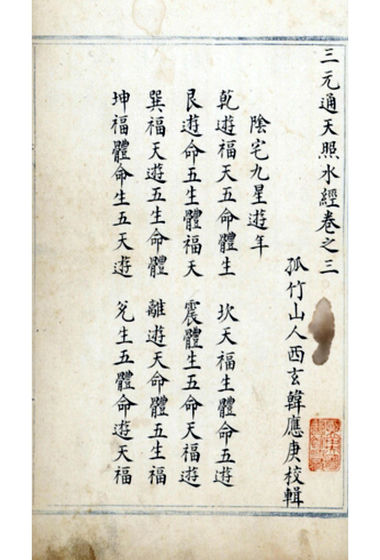 三元通天照水經卷之三
孤竹山人西玄韓應庚校輯
陰宅九星遊年
乾遊福天五命體生 坎天福生體命五遊
艮遊命五生體福天 震體生五命天福遊
巽福天遊五生命體 離遊天命體五生福
坤福體命生五天遊 兌生五體命遊天福